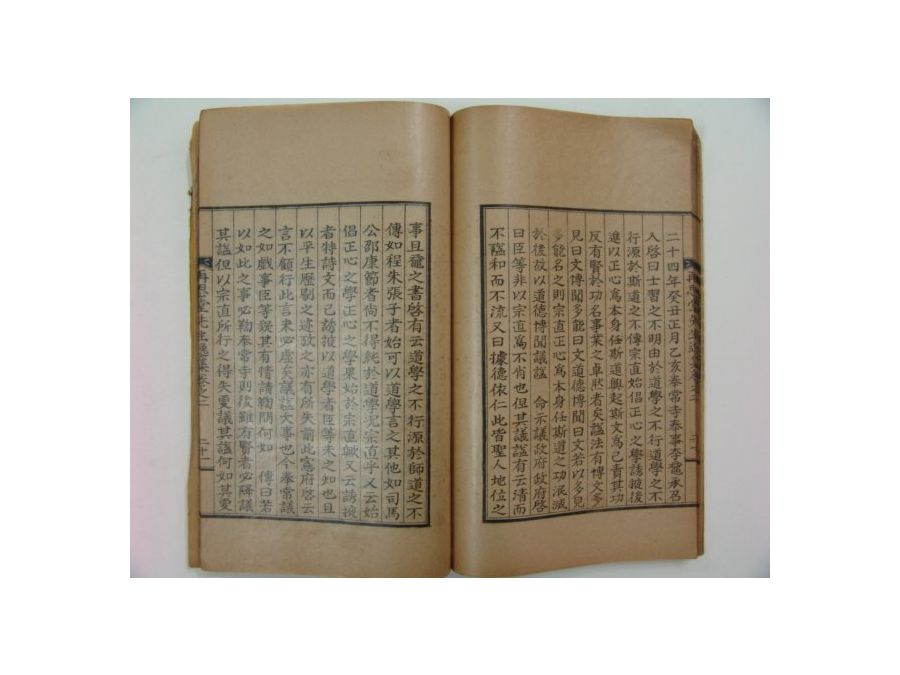 二十四年癸丑正月乙亥奉常寺奉事李黿承召
入啓曰士習之不明由於道學之不行道學之不
行源於斯道之不傳宗直始倡正心之學誘掖後
進以正心爲本身任斯道興起斯文爲己責其功
反有賢於功名事業之卓然者矣諡法有博文多
見曰文博聞多能曰文道德博聞曰文若以多見
多能名之則宗直正心爲本身任斯道之功泯滅
於後故以道德博聞議諡 命示議政府政府啓
曰臣等非以宗直爲不肖也但其議諡有云清而
不隘和而不流又曰據德依仁此皆聖人地位之
事且黿之書啓有云道學之不行源於師道之不
傳如程朱張子者始可以道學言之其他如司馬
公邵康節者尙不得純於道學況宗直乎又云始
倡正心之學正心之學果始於宗直歟又云誘掖
者特詩文而已誘掖以道學者臣等未之知也且
以平生歷剔之迹攷之亦有所失前此憲府啓云
言不顧行此言未必虛矣議諡大事也今奉常議
之如戲事臣等疑其有情請鞫問何如 傳曰若
以如此之事必鞫奉常寺則後雖有賢者必降議
其諡但以宗直所行之得失更議其諡何如其更
再思堂先生逸集卷之三 二十一